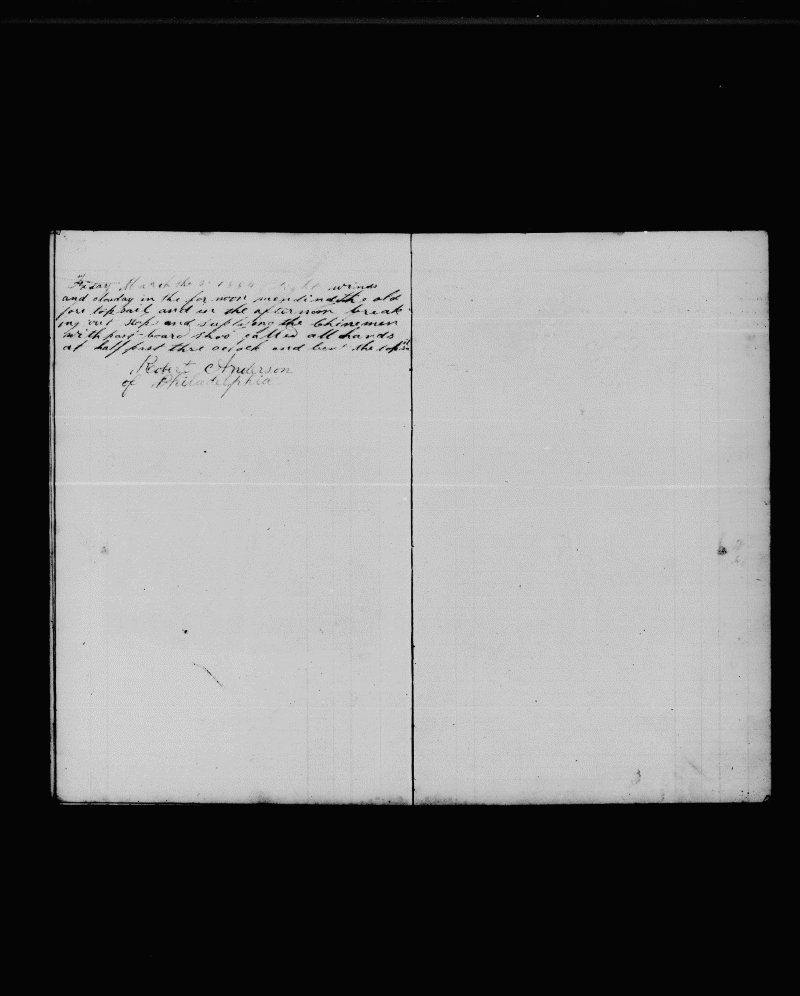 Friday March the light winds
and clowday in the for noon mending the old
fore top sail and in the after noon break
ing out slops and suplying the Chinemen
with past board shoo called all hands
at half past thre oclock and ben' the topsail
Robert Anderson
of Philadelphia